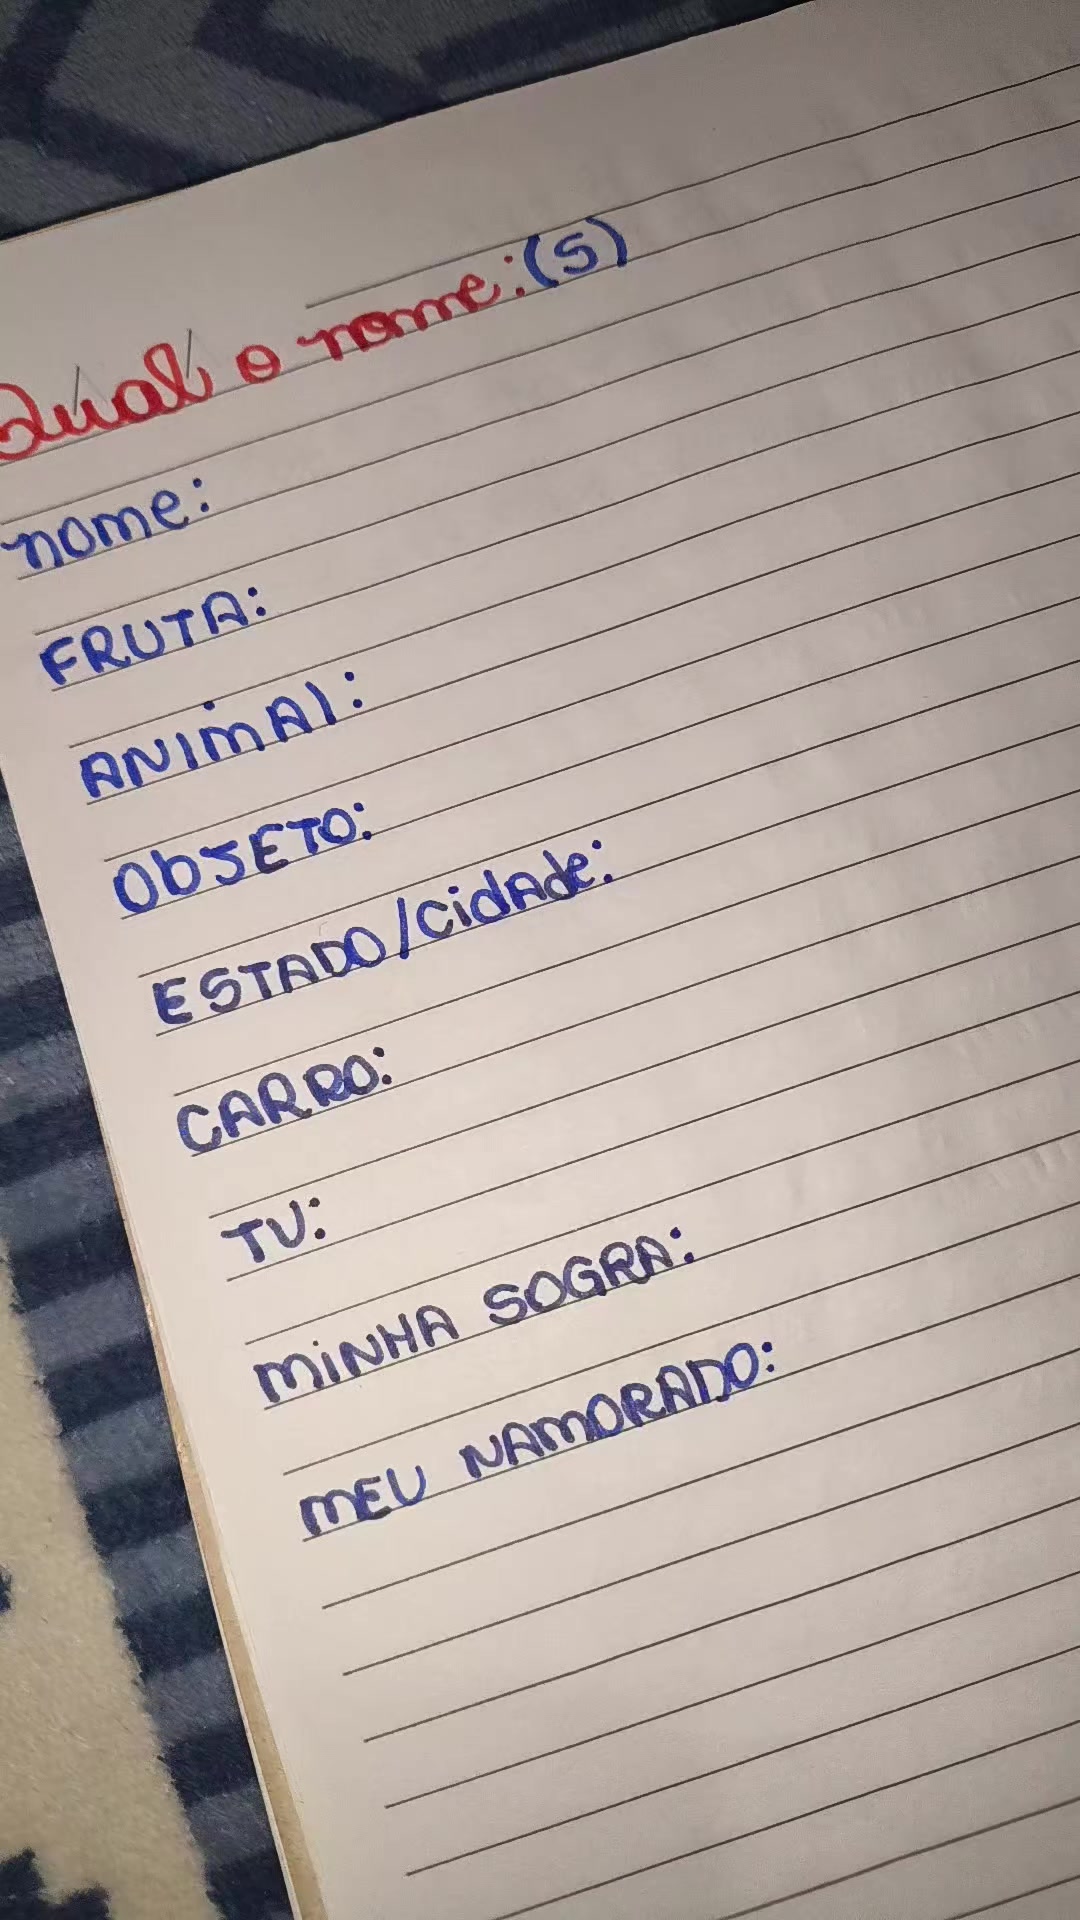 Qual o nome:(S)
nome:
FRUTA:
ANIMAl:
ObJETO:
ESTADO/CidAde:
CARRO:
TV:
MiNHA SOGRA:
MEU NAMORADO: